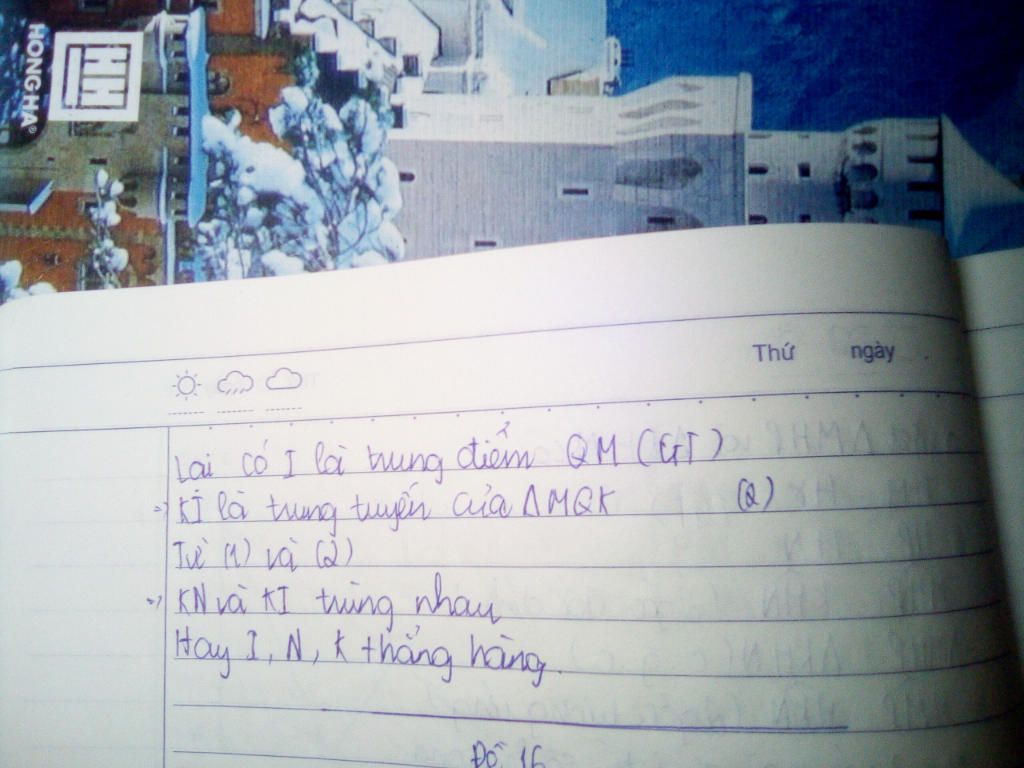 HONG HA®
Thứ ngày
Lại có I là trung điểm QM (GT)
=> KI là trung tuyến của ΔMQK (2)
Từ (1) và (2)
=> KN và KI trùng nhau
Hay I, N, K thẳng hàng.
Đề 16